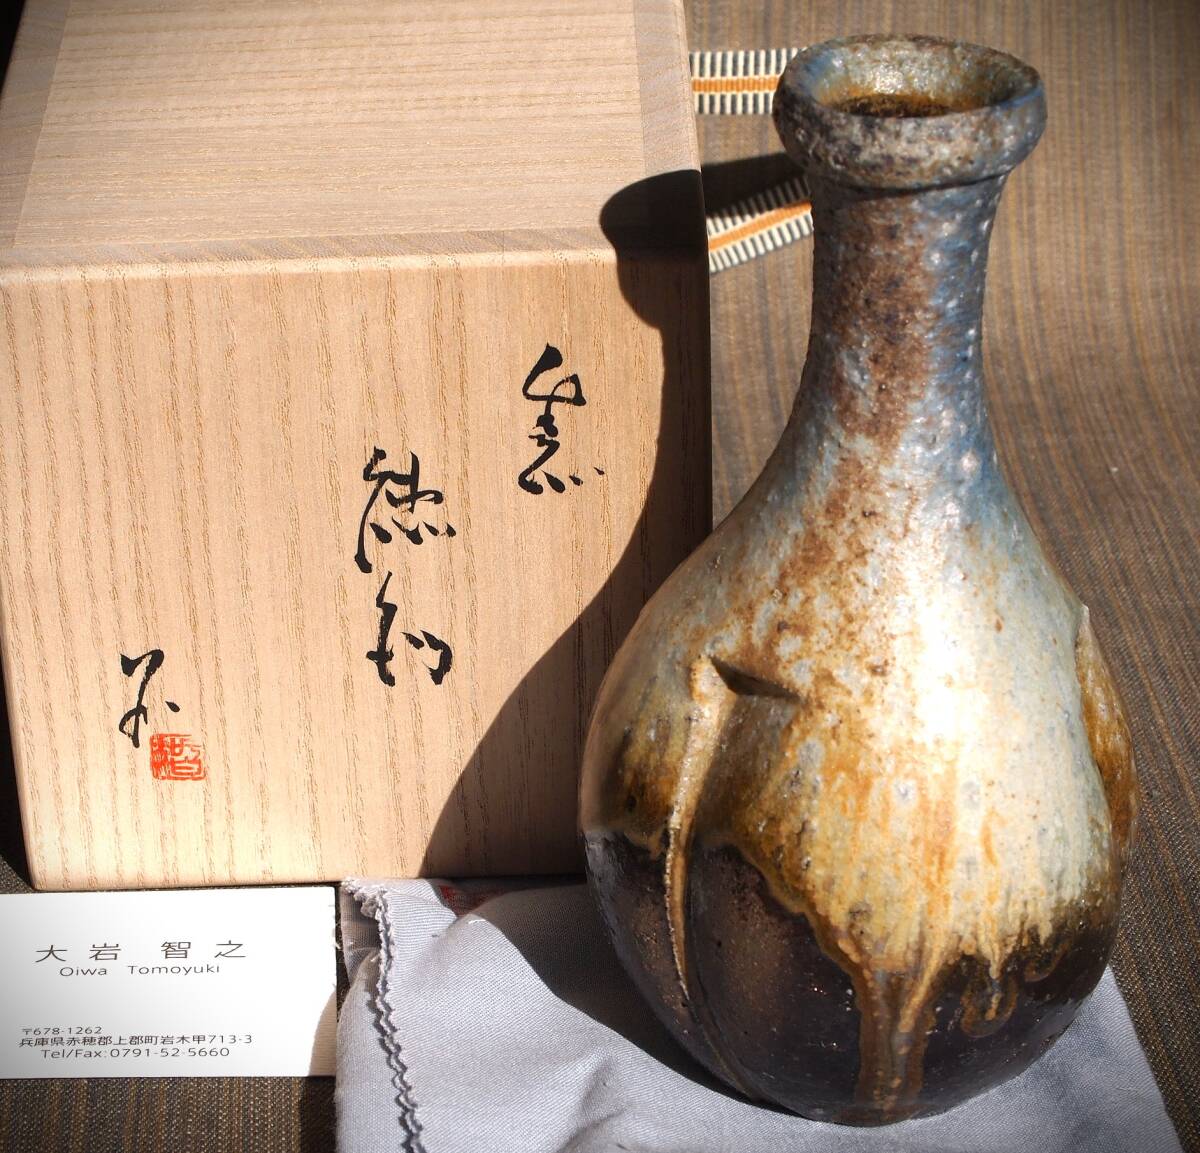 徳利
大岩 智之
Oiwa Tomoyuki
〒678-1262
兵庫県赤穂郡上郡町岩木甲713-3
Tel/Fax:0791-52-5660